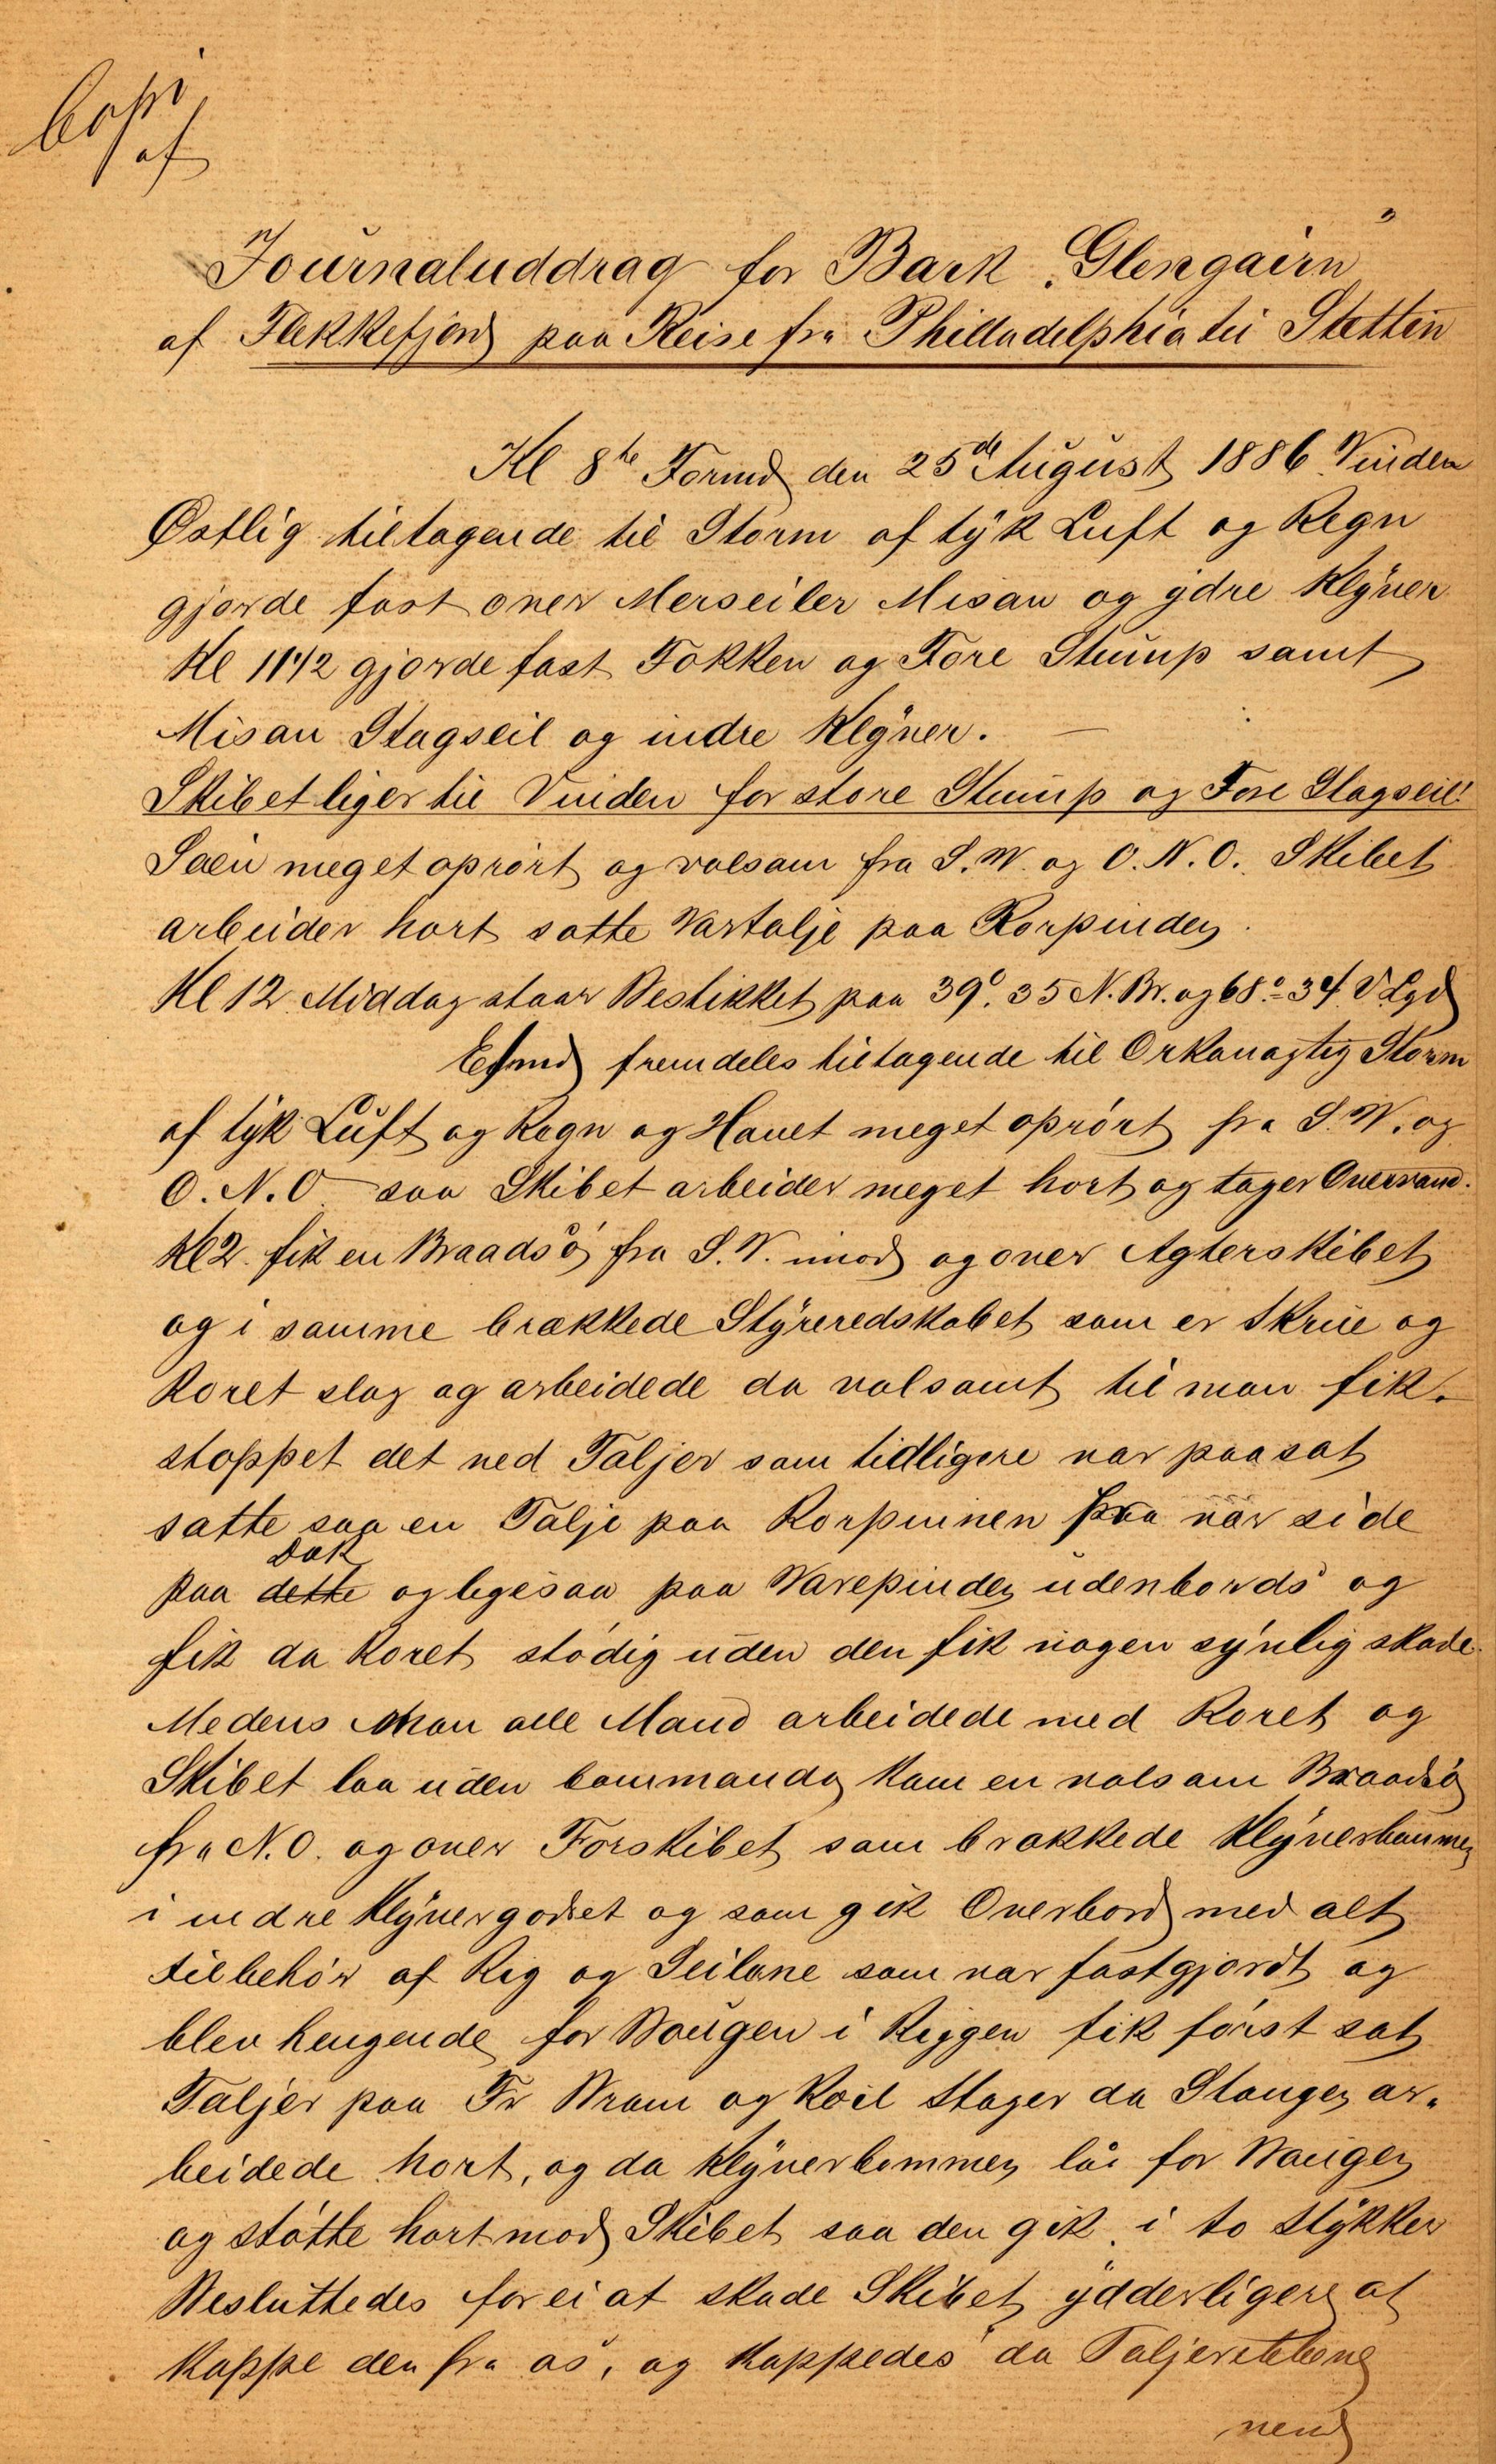 Copi
af
Journaluddrag for Bark "Glengairn"
af Flekkefjord paa Reise fra Philladelphia til Stettin
Kl 8te Formd den 25de August 1886 Vinden
Østlig tiltagende til Storm af tÿk Luft og Regn
gjorde fast over Merseiler Misan og ydre Klÿver
Kl 11 1/2 gjorde fast Fokken og Fore Stump samt
Misan Stagseil og indre Klÿver. —
Skibet liger til Vinden for store Stump og Fore Stagseil
Søen meget oprört og volsam fra S.W. og O.N.O. Skibet
arbeider hort satte Vartalje paa Rorpinden.
Kl 12 Middag staar Bestikket paa 39° 35 N.Br. og 68° 34 V Lgd
Efmd fremdeles tiltagende til Orkanagtig Storm
af tÿk Luft og Regn og Havet meget oprört fra S.W. og
O.N.O saa Skibet arbeider meget hort og tager Overvand.
Kl 2 fik en Braadsö fra S.V. imod og over Agterskibet
og i samme brækkede Stÿreredskabet som er Skrue og
Roret slog og arbeidede da volsamt til man fik
stoppet det ved Taljer som tidligere var paasat
satte saa en Talje paa Rorpinnen paa vær side
Dæk
paa dette og ligesaa paa Varepinden udenbords og
fik da Roret stödig uden den fik nogen sÿnlig skade.
Medens Man alle Mand arbeidede med Roret og
Skibet laa uden Commando kom en volsam Braadsö
fra N.O. og over Forskibet som brækkede Klÿverbaumen
i indre Klÿvergodset og som gik Overbord med alt
tilbehör af Rig og Seilene som var fastgjordt og
blev hengende for Bougen i Riggen fik först sat
Taljer paa Fr Bram og Roil Stager da Stangen ar-
beidede hort, og da Klÿverbommen lå for Bougen
og stötte hort mod Skibet saa den gik i to Stÿkker
Besluttedes for ei at skade Skibet ÿdderligere at
Kappe den fra os, og Kappedes da
ved